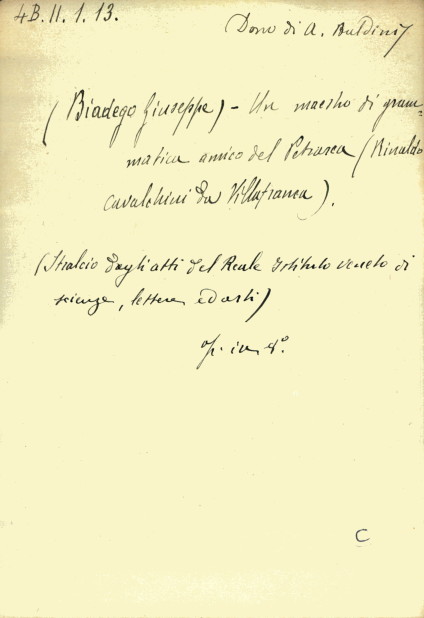 4B.II.1.13.
Dono di A. Baldini
(Biadego Giuseppe) - Un maestro di gram-
matica amico del Petrarca (Rinaldo
Cavalchini da Villafranca).
(Stralcio dagli atti del Reale Istituto veneto di
scienze, lettere ed arti)
op. in 8º.
C